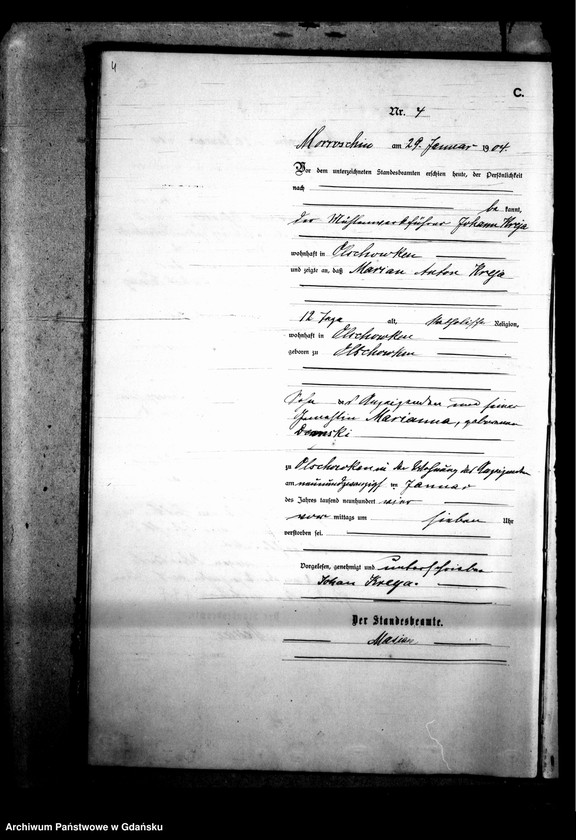 4
C.
Nr. 4
Morroschin am 29. Januar 1904.
Vor dem unterzeichneten Standesbeamten erschien heute, der Persönlichkeit
nach
be kannt,
der Mühlenwerkführer Johann Kreja
wohnhaft in Olschowken
und zeigte an, daß Marian Anton Kreja
12 Tage alt, katholischer Religion,
wohnhaft in Olschowken
geboren zu Olschowken
Sohn des Anzeigenden und seiner
Ehefrau Marianna, geborenen
Domski
zu Olschowken in der Wohnung des Anzeigenden
am neunundzwanzigsten Januar
des Jahres tausend neunhundert vier
vor mittags um sieben Uhr
verstorben sei.
Vorgelesen, genehmigt und unterschrieben
Johan Kreja.
Der Standesbeamte.
Archiwum Państwowe w Gdańsku